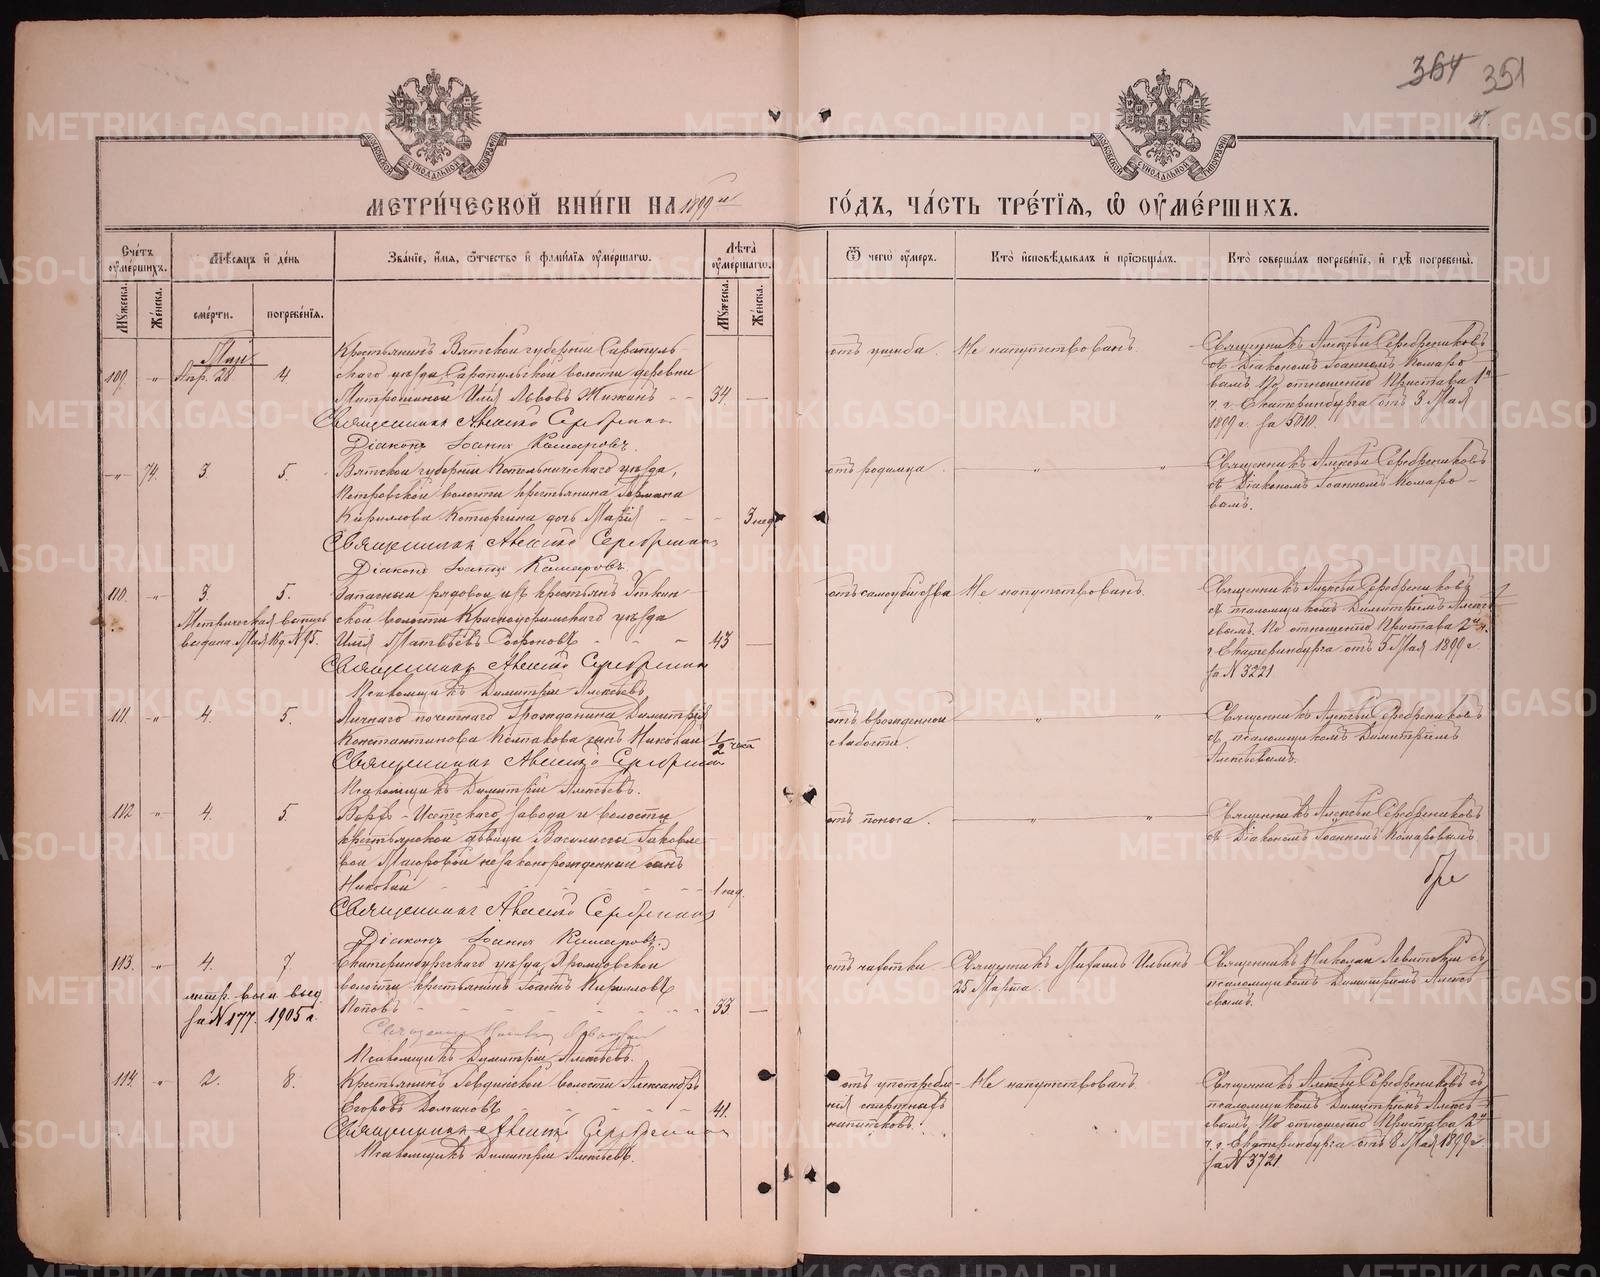 364 351
МЕТРИ́ЧЕСКОЙ КНИ́ГИ НА 1899 й ГО́ДЪ, ЧА́СТЬ ТРЕ́ТІѦ, Ѡ ОУМЕ́РШИХЪ.
Сче́тъ оумершихъ.
Мѣсяцъ и день
Зва́нїе, и́мя, ѿчество и фамилїя оумершагω.
Лѣта оумершагω.
Ѿ чегω оумеръ.
Кто исповѣдывалъ и прїωбщалъ.
Кто совершалъ погребенїе, и гдѣ погребены.
Мужеска.
Женска.
смерти.
погребенїя.
Мужеска.
Женска.
Май
109. " Апр. 28 4
Крестьянинъ Вятской губерніи Сарапуль-
скаго уѣзда Сарапульской волости деревни
Митрошиной Илія Львовъ Жижинъ - - 34. —
Священник Алексій Серебреников
Діаконъ Іоаннъ Комаровъ.
отъ ушиба.
Не напутствованъ.
Священникъ Алексѣй Серебрениковъ
съ Діакономъ Іоанномъ Комаро-
вымъ. По отношенію Пристава 1й
ч. г. Екатеринбурга отъ 3 Мая
1899 г. за 5010.
" 74. 3. 5.
Вятской губерніи Котельническаго уѣзда,
Петровской волости крестьянина Германа
Кириллова Котюргина дочь Марія - - - 3 нед.
Священник Алексій Серебреников
Діаконъ Іоаннъ Комаровъ.
отъ родимца.
" "
Священникъ Алексѣй Серебрениковъ
съ Діакономъ Іоанномъ Комаро-
вымъ.
110. " 3. 5.
Метрическая выпись
выдана Мая 18 д. № 95.
Запасный рядовой изъ крестьянъ Уткин-
ской волости Красноуфимскаго уѣзда
Илія Матвѣевъ Софоновъ - - - 43 —
Священник Алексій Серебреников
Псаломщикъ Димитрій Алексѣевъ.
отъ самоубійства
Не напутствованъ.
Священникъ Алексѣй Серебрениковъ
съ псаломщикомъ Димитріемъ Алексѣ-
евымъ. По отношенію Пристава 2й ч.
г. Екатеринбурга отъ 5 Мая 1899 г.
за № 3221
111. " 4. 5.
Личнаго почетнаго Гражданина Димитрія
Константинова Колпакова сынъ Николай 1/2 часа
Священник Алексій Серебреников
Псаломщикъ Димитрій Алексѣевъ.
отъ врожденной
слабости.
" "
Священникъ Алексѣй Серебрениковъ
съ псаломщикомъ Димитріемъ
Алексѣевымъ.
112 " 4. 5.
Верхъ-Исетскаго завода и волости
крестьянской дѣвицы Василисы Іаковле-
вой Маюровой незаконорожденный сынъ
Николай - - - - - 1 нед.
Священник Алексій Серебреников
Діаконъ Іоаннъ Комаровъ.
отъ поноса.
" "
Священникъ Алексѣй Серебрениковъ
съ Діакономъ Іоанномъ Комаровымъ
113. " 4. 7
метр. вып. выд.
за № 177. 1905 г.
Екатеринбургскаго уѣзда
волости крестьянинъ Іоаннъ Кирилловъ
Поповъ - - - - - 33. —
Псаломщикъ Димитрій Алексѣевъ.
отъ чахотки
Священникъ Михаилъ Ильинъ
25 Марта.
Священникъ Николай Левитскій съ
псаломщикомъ Димитріемъ Алексѣ-
евымъ.
114. " 2. 8.
Крестьянинъ Ревдинской волости Александръ
Егоровъ Домановъ - - - - 41.
Священник Алексій Серебреников
Псаломщикъ Димитрій Алексѣевъ.
отъ употребле-
нія спиртныхъ
напитковъ.
Не напутствованъ.
Священникъ Алексѣй Серебрениковъ съ
псаломщикомъ Димитріемъ Алексѣ-
евымъ. По отношенію Пристава 2й
ч. г. Екатеринбурга отъ 8 Мая 1899 г.
за № 3721.
METRIKI.GASO-URAL.RU